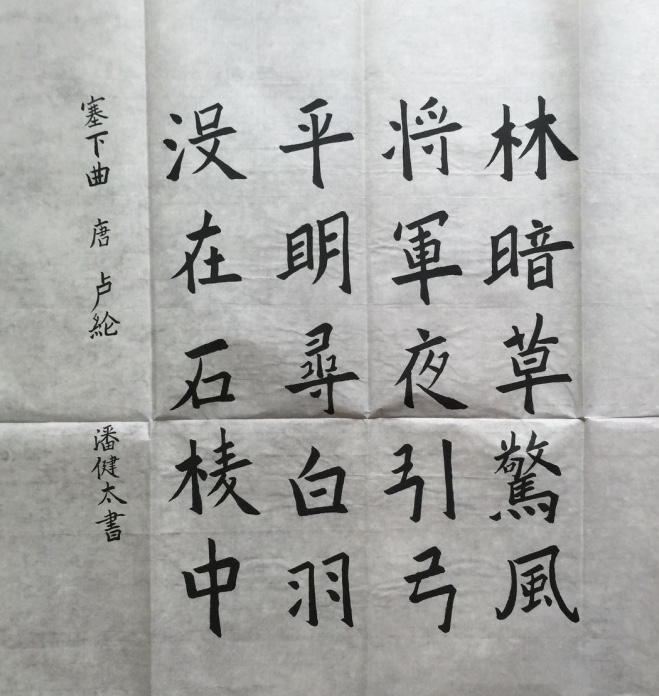 林暗草驚風
将軍夜引弓
平明尋白羽
没在石棱中
塞下曲 唐 卢綸
潘健太書